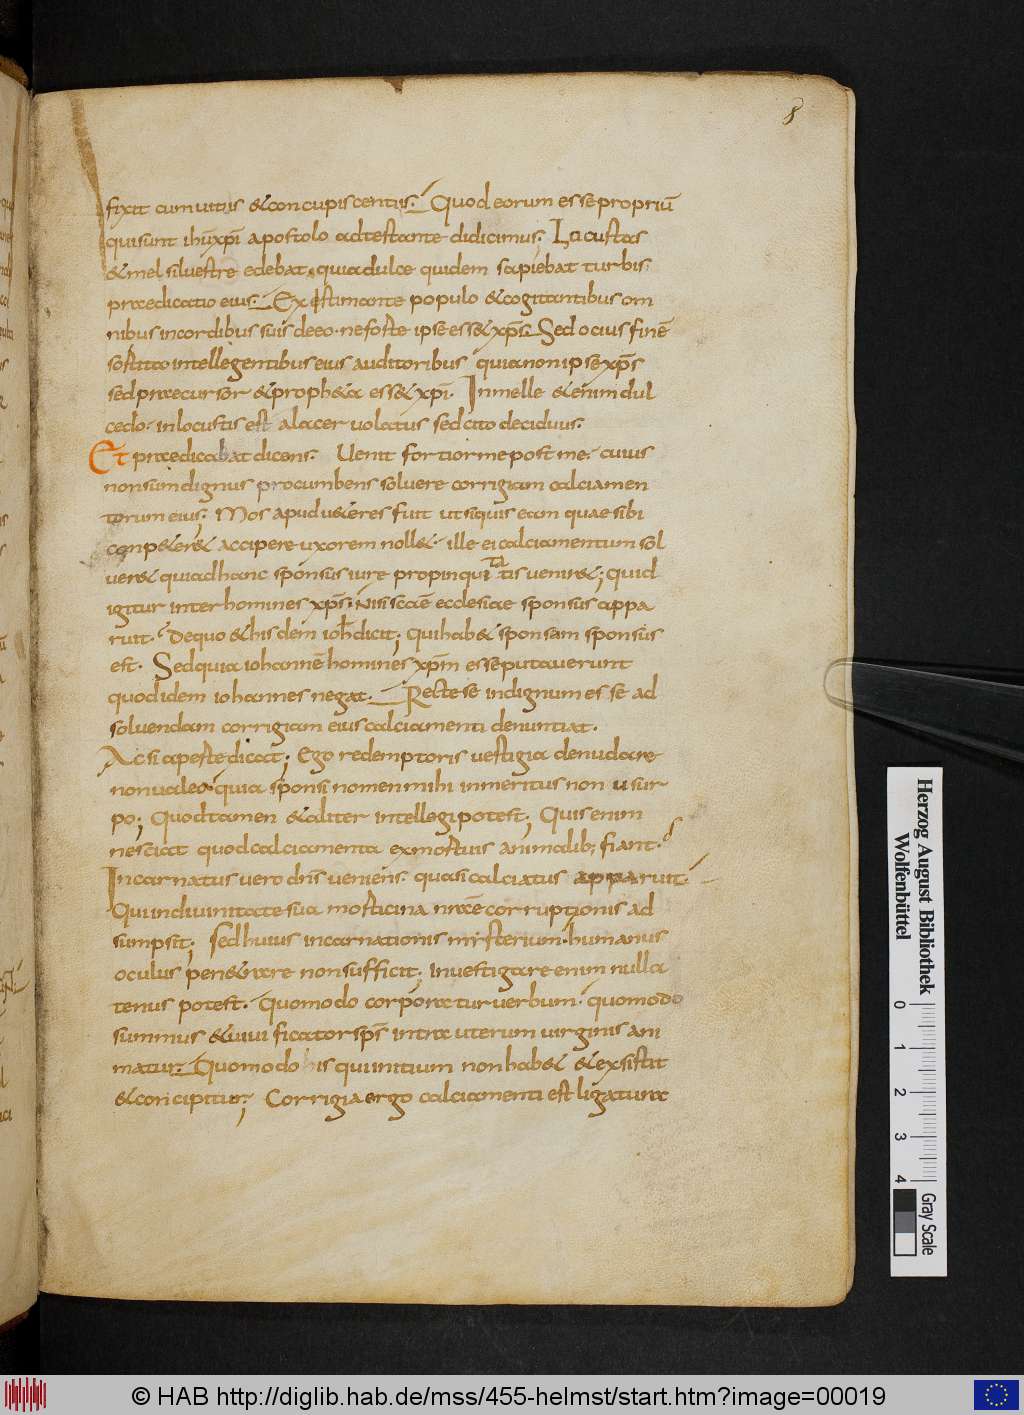 8
fixit cum uitiis & concupiscentiis. Quod eorum esse propriū
qui sunt ihū xpī apostolo adtestante didicimus; Locustas
& mel siluestre edebat. quia dulce quidem sapiebat turbis
praedicatio eius. Existimante populo & cogitantibus om
nibus in cordibus suis de eo. ne forte ipse ess& xps. Sed ocius finē
sortita intellegentibus eius auditoribus quia non ipse xps
sed praecursor & proph&a ess& xpī. In melle &enim dul
cedo. in locustis est alacer uolatus sed cito deciduus.
Et praedicabat dicens. Uenit fortior me post me. cuius
non sum dignus procumbens soluere corrigiam calciamen
torum eius; Mos apud u&eres fuit ut siquis eam quae sibi
conp&er& accipere uxorem noll&. ille ei calciamentum sol
uer& qui ad hanc sponsus iure propinquitatis uenir&; quid
igitur inter homines xps. nisi scae ecclesiae sponsus appa
ruit. De quo & hisdem ioh dicit; qui hab& sponsam sponsus
est. Sed quia iohannē homines xpm esse putauerunt
quod idem iohannes negat. Recte se indignum esse ad
soluendam corrigiam eius calciamenti denuntiat.
Ac si aperte dicat; Ego redemptoris uestigia denudare
non ualeo. quia sponsi nomen mihi inmeritus non usur
po; Quod tamen & aliter intellegi potest; Quis enim
nesciat quod calciamenta ex mortuis animalib; fiant.
Incarnatus uero dns ueniens. quasi calciatus apparuit.
Qui in diuinitate sua morticina nrae corruptionis ad
sumpsit; sed huius incarnationis mysterium. humanus
oculus pen&rare non sufficit; inuestigare enim nulla
tenus potest. Quomodo corporatur uerbum. quomodo
summus & uiuificator sps intra uterum uirginis ani
matur. Quomodo his qui initium non hab& & exsistit
& concipitur; Corrigia ergo calciamenti est ligatura
Herzog August Bibliothek
Wolfenbüttel
0 1 2 3 4
Gray Scale
© HAB http://diglib.hab.de/mss/455-helmst/start.htm?image=00019